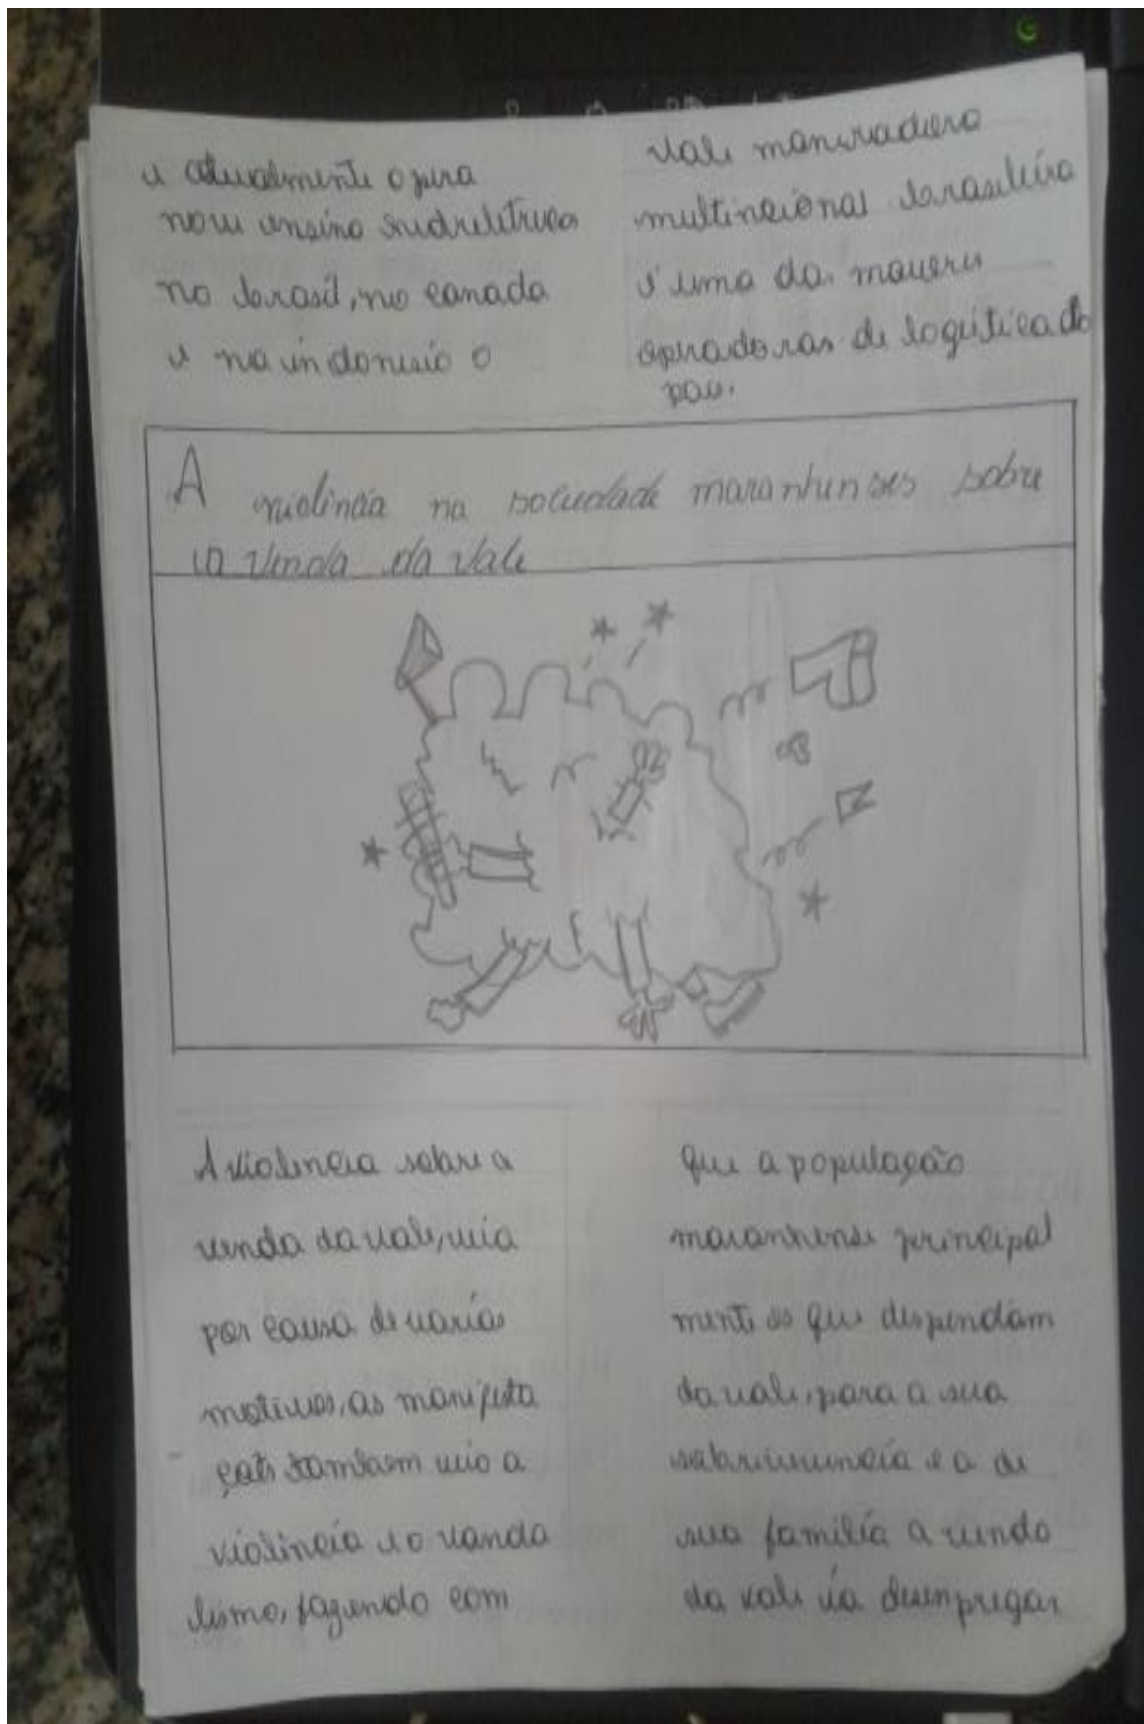 e atualmente opera
nove ensino sudreletricas
no brasil, no canada
e na indonesio o
Vale maneradiera
multineional brasileira
é uma da maueris
operadoras de logistica do
pais.
A violincia na sociedade maranhenses sobre
a venda da Vale
A violencia sobre a
venda da vale, veia
por causa de varias
motivos, as manifesta
çoes tambaem veio a
violincia e o vanda
lismo, fazendo com
que a população
maranhense principal
mente os que despendam
da vale, para a sua
sobrevivencia e a de
sua familia a vendo
da vale ia desenpregar